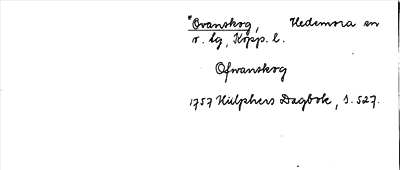 *Ovanskog, Hedemora sn
v. bg, Kopp. l.
Ofwanskog
1757 Hülphers Dagbok, s. 527.